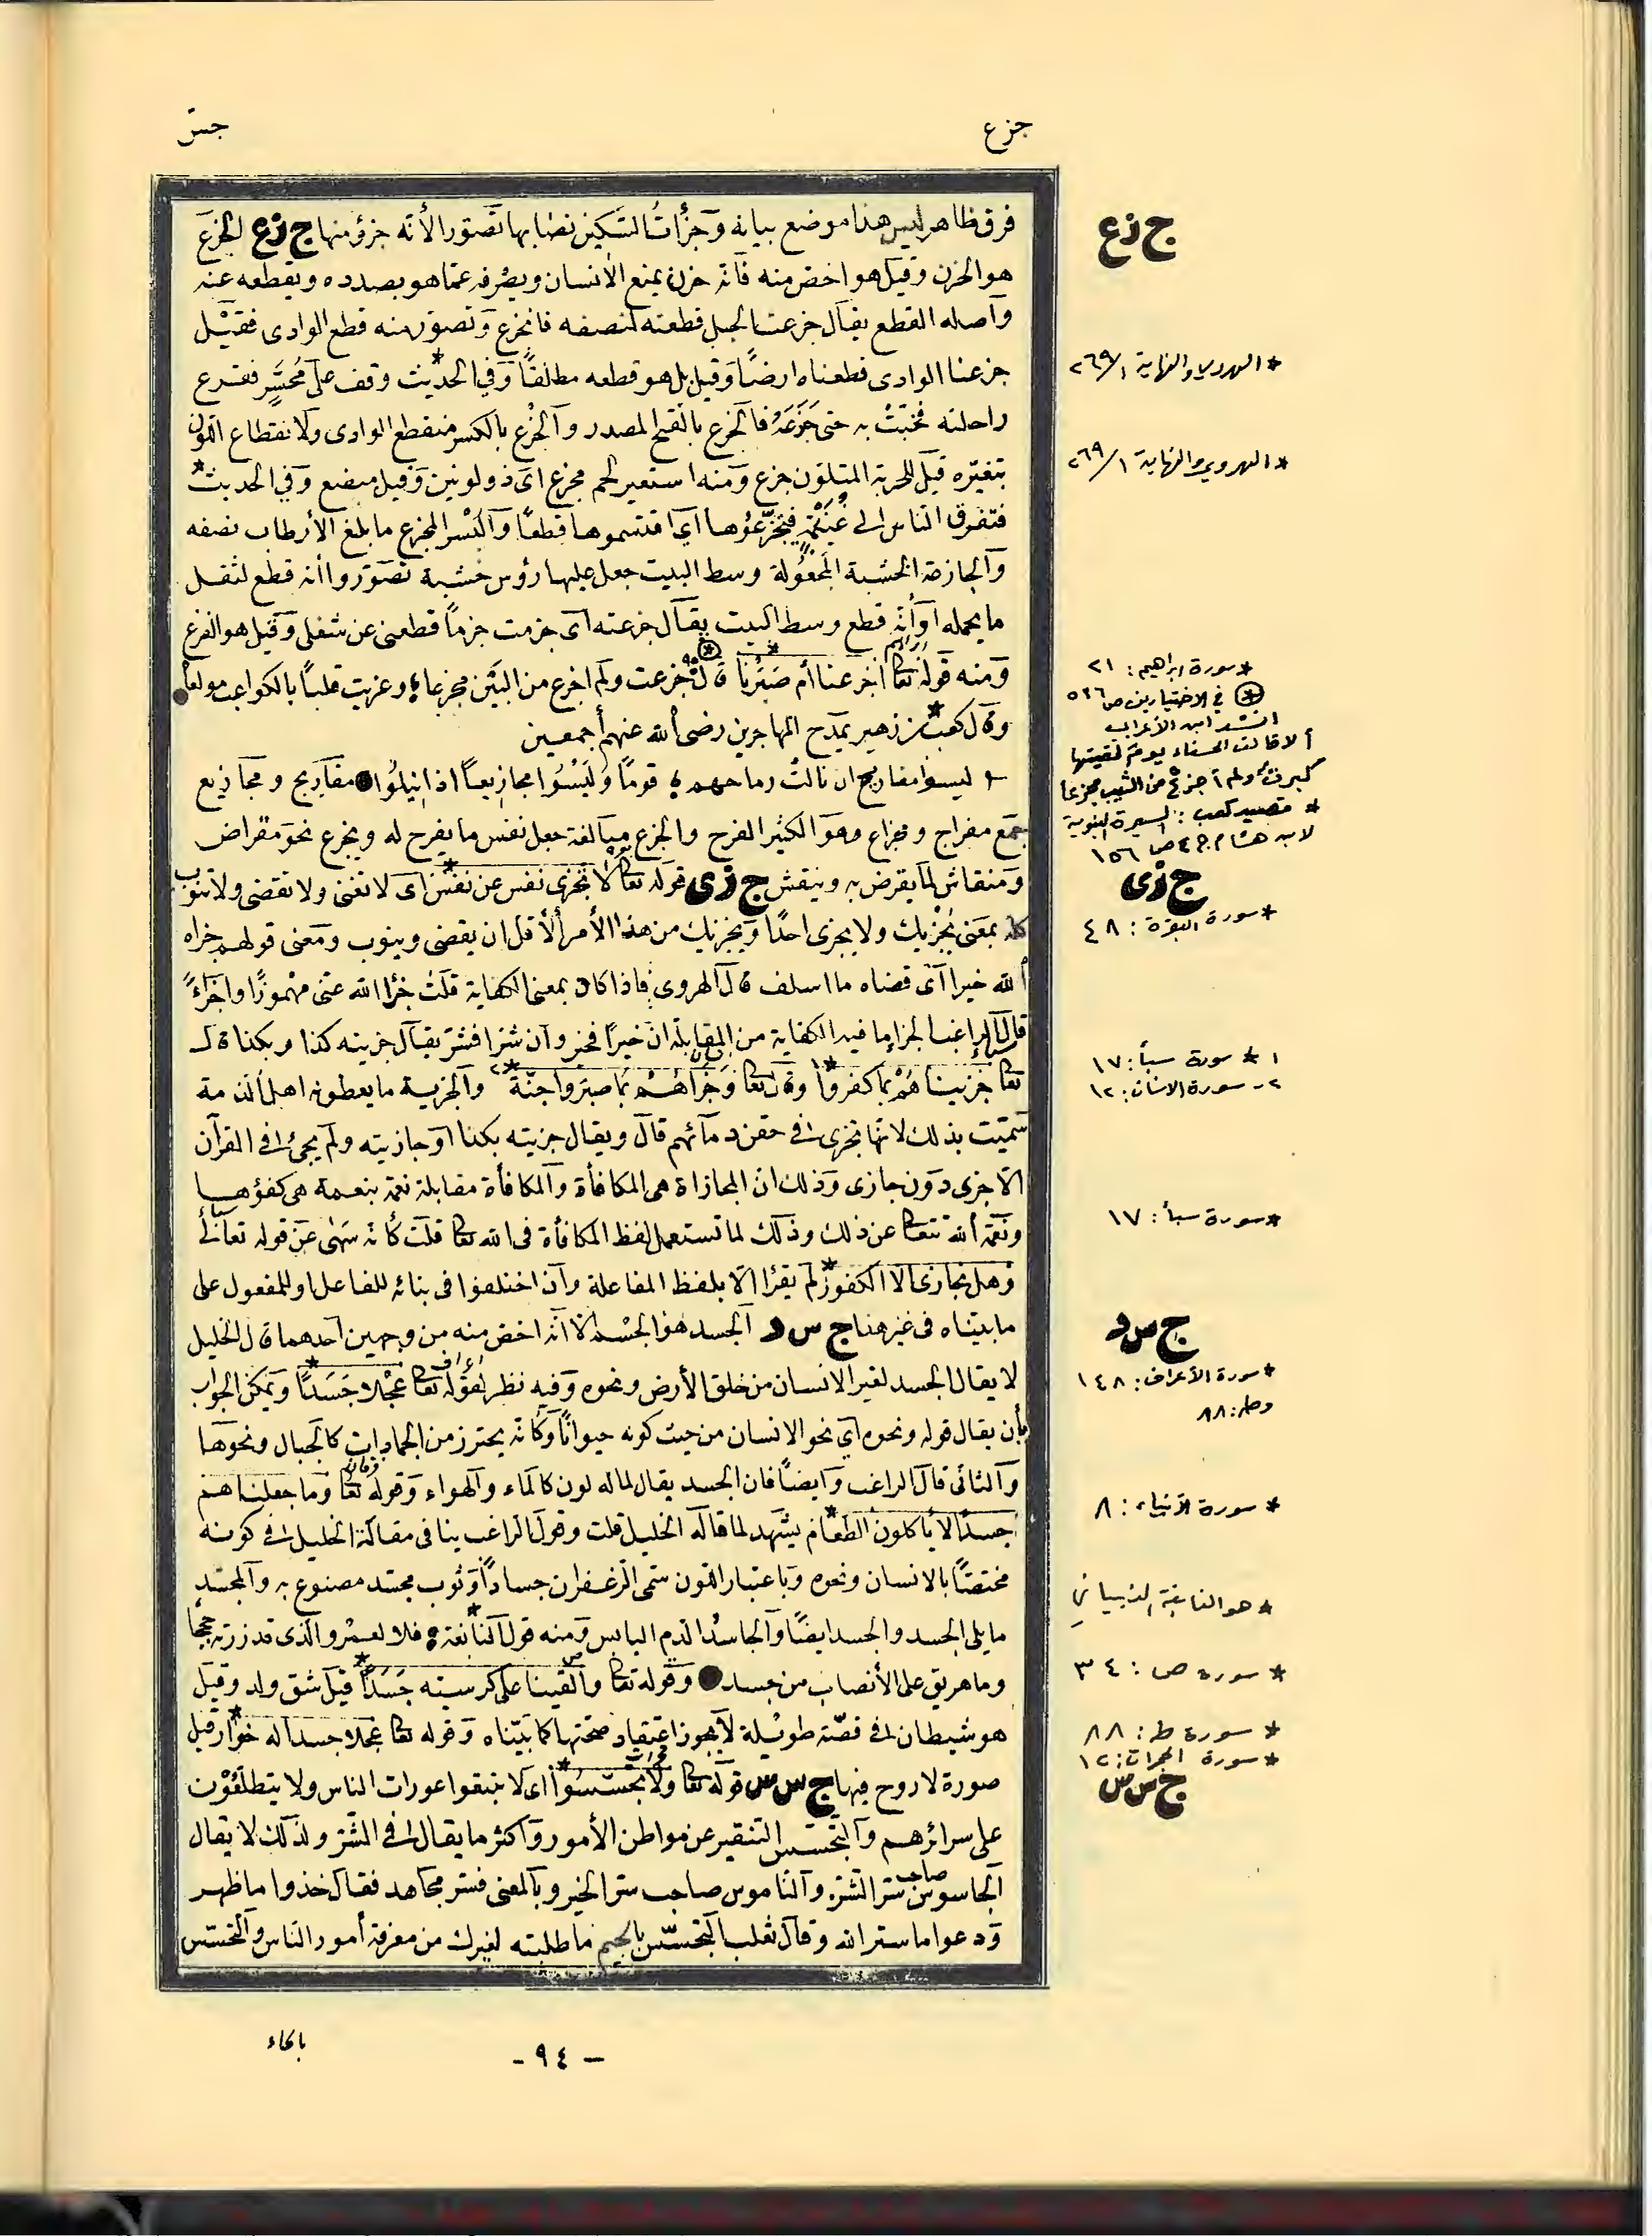 جزع
جسس
فرق ظاهر ليس هذا موضع بيانه وجزأت السكين نصابها تصور الأنه جزؤ منها ج زع الجزع
هو الحزن وقيل هو اخص منه فانه حزن يمنع الانسان ويصرفه عما هو بصدده ويقطعه عنه
وأصله القطع يقال جزعت الحبل قطعته لنصفه فانجزع وتصور منه قطع الوادى فقيل
جزعنا الوادى قطعناه ارضًا وقيل بل هو قطعه مطلقًا وفي الحديث* وقف على مُحَسِّر فقرع
راحلته فخبّتْ به حتى جَزَعَهُ فالجزع بالفتح المصدر والجزع بالكسر منقطع الوادى ولانقطاع اللون
بتغيّره قيل للخرزة المتلون جزع ومنه استعير لحم مجزع اى ذو لونين وقيل مبضع وفي الحديث*
فتفرق الناس الى غُنَيْمَةٍ فتجزّعوُها أي اقتسموها قطعًا والبُسْر المجزع ما بلغ الأرطاب نصفه
والجازعة الخشبة المجعولة وسط البيت جعل عليها رؤس خشبة تصوروا أنه قطع لثقل
ما يحمله او أنه قطع وسط البيت يقال جزعته اى جزمت جزمًا قطعنى عن شغلى وقيل هو الفزع
ومنه قوله تعا اجزعنا أم صبرنا* قال جزعت ولم اجزع من البين مجزعا وعزيت قلبًا بالكواعب مولعا
وقال كعب* بن زهير يمدح المهاجرين رضى الله عنهم أجمعين
ليسوا مفاريح ان نالتْ رماحهم قومًا ولَيْسُوا مجازيعًا اذا نِيلُوا مفاريح ومجازيع
جمع مفراج وجزاع وهو الكثير الفرح والجزع مبالغة جعل نفس ما يفرح له ويجزع نحو مقراض
ومنقاش لما يقرض به وينقش ج زى قوله تعا لا تجزى نفس عن نفس* اى لا تغنى ولا تقضى ولا تنوب
كله بمعنى يُجْزيك ولا يجزى احدًا ويجزيك من هذا الأمر الأقل ان يقضى وينوب ومعنى قولهم جزاه
الله خيرا اى قضاه ما اسلف قال الهروى فاذا كان بمعنى الكفاية قلت جزأ الله عنى مهموزًا واجزاءً
قال الراغب الجزا ما فيه الكفاية من المقابلة ان خيرًا فخير وان شرا فشر يقال جزيته كذا وبكذا قال
تعا جزيناهُمْ بما كفروا*١ وقال تعا وَجَزاهُمْ بما صبروا جنّة*٢ والجزية ما يعطونه اهل الذمة
سميت بذلك لانها تجزى في حقن دمآئهم قال ويقال جزيته بكذا او جازيته ولم يجئ في القرآن
الا جزى دون جازى وذلك ان المجازاة هى المكافأة والمكافأة مقابلة نعمة بنعمة هى كفؤها
ونعمة الله تتعا عن ذلك وذلك لما تستعمل لفظ المكافأة فى الله تعا قلت كأنه سَهٰى عن قوله تعالٰى
وهل نجازى الا الكفور* لم يقرا الا بلفظ المفاعلة وان اختلفوا فى بنائه للفاعل او للمفعول على
ما بيناه فى غير هذا ج س د الجسد هو الجسْم الا انه اخص منه من وجهين احدهما قال الخليل
لا يقال الجسد لغير الانسان من خلق الأرض ونحوه وفيه نظر لقوله تعا عجْلا جَسَدًا* ويمكن الجواب
بأن يقال قوله ونحوه اى نحو الانسان من حيث كونه حيوانًا وكأنه يحترز من الجمادات كالجبال ونحوها
والثانى قال الراغب وايضًا فان الجسد يقال لما له لون كالماء والهواء وقوله تعا وما جعلناهم
جسدًا لا يأكلون الطعام* يشهد لما قاله الخليل قلت وقول الراغب ينافى مقالة الخليل فى كونه
مختصًا بالانسان ونحوه وباعتبار اللون سمى الزعفران جسادًا وثوب مجسد مصنوع به والمجسد
ما يلى الجسد والجسد ايضًا والجاسدُ الدم اليابس ومنه قول النابغة* فلا لعمْرو الذى قد زرته حججًا
وما هريق على الأنصاب من جسد وقوله تعا والقينا على كرسيته جَسَدًا* قيل شق ولد وقيل
هو شيطان فى قصّة طويلة لا يجوز اعتقاد صحتها كما بيّناه وقوله تعا عجلا جسدا له خوار* قيل
صورة لا روح فيها ج س س قوله تعا ولا تجسّسُوا* اى لا تتبعوا عورات الناس ولا يتطلعُوْن
على سرائرهم والتجسّس التنقير عن مواطن الأمور واكثر ما يقال فى الشر ولذلك لا يقال
الجاسوس صاحب سر الشر والناموس صاحب سر الخير وبالمعنى فسر مجاهد فقال خذوا ما ظهر
ودعوا ما ستر الله وقال ثعلب التجسّس بالجيم ما طلبته لغيرك من معرفة أمور الناس والتحسّس
ج زع
* الهروي والنهاية ٢٦٩/١
* الهروي والنهاية ٢٦٩/١
* سورة ابراهيم: ٢١
(*) في الاختيارين ص ٥٤٦
انشد ابن الأعرابي
ألا قالت الحسناء يوم لقيتها
كبرت ولم أجزع من الشيب مجزعا
* قصيد كعب: السيرة النبوية
لابن هشام ج ٤ ص ١٥٦
ج زى
* سورة البقرة: ٤٨
١ * سورة سبأ: ١٧
٢- سورة الانسان: ١٢
* سورة سبأ: ١٧
ج س د
* سورة الأعراف: ١٤٨
وطه: ٨٨
* سورة الأنبياء: ٨
* هو النابغة الذبياني
* سورة ص: ٣٤
* سورة طه: ٨٨
* سورة الحجرات: ١٢
ج س س
بالحاء
- ٩٤ -